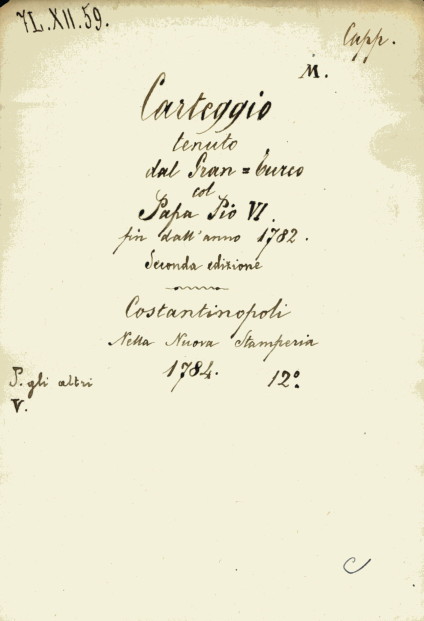 7L.XII.59.
Capp.
M.
Carteggio
tenuto
dal Gran=Turco
col
Papa Pio VI.
fin dall'anno 1782.
Seconda edizione
Costantinopoli
Nella Nuova Stamperia
1784. 12º
P. gli altri
V.